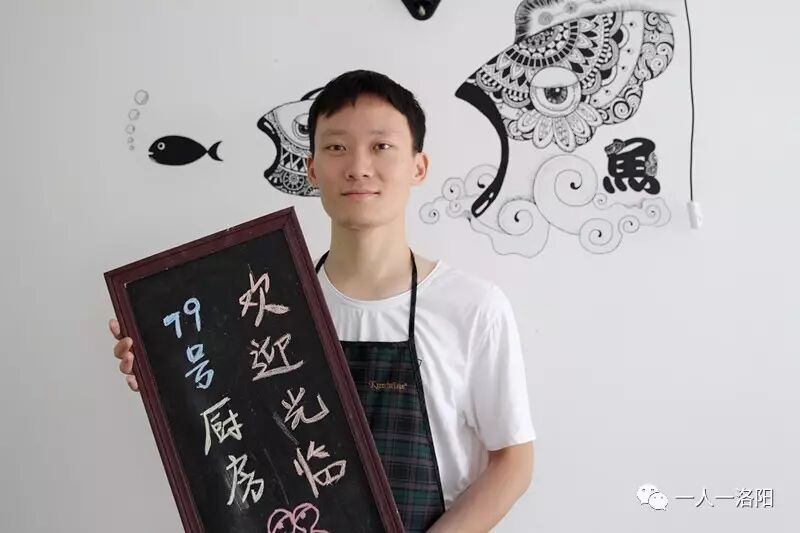 欢迎光临
79号厨房
魚
一人一洛阳